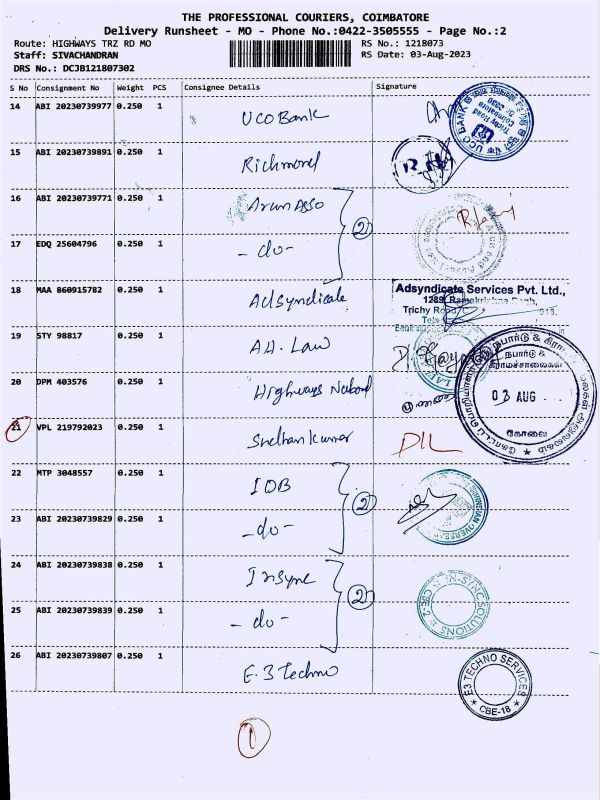 THE PROFESSIONAL COURIERS, COIMBATORE
Delivery Runsheet - MO - Phone No.:0422-3505555 - Page No.:2
Route: HIGHWAYS TRZ RD MO RS No.: 1218073
Staff: SIVACHANDRAN RS Date: 03-Aug-2023
DRS No.: DCJB121807302
S No Consignment No Weight PCS Consignee Details Signature
14 ABI 20230739977 0.250 1 UCO Bank
UCO BANK
Trichy Road
Coimbatore
15 ABI 20230739891 0.250 1 Richmond
16 ABI 20230739771 0.250 1 Arun Asso
2
17 EDQ 25604796 0.250 1 - do -
18 MAA 860915782 0.250 1 Adsyndicate
Adsyndicate Services Pvt. Ltd.,
Trichy Road
19 STY 98817 0.250 1 AH. Law
20 DPM 403576 0.250 1 Highways Nabard
நபார்டு &
கிராமச்சாலைகள்
03 AUG
கோவை
21 VPL 219792023 0.250 1 DIL
22 MTP 3048557 0.250 1 IOB
2
23 ABI 20230739829 0.250 1 - do -
24 ABI 20230739838 0.250 1 Insync
2
IN-SYNC SOLUTIONS
CBE-2
25 ABI 20230739839 0.250 1 - do -
26 ABI 20230739807 0.250 1 E. 3 Techno
E3 TECHNO SERVICES
CBE-18
1